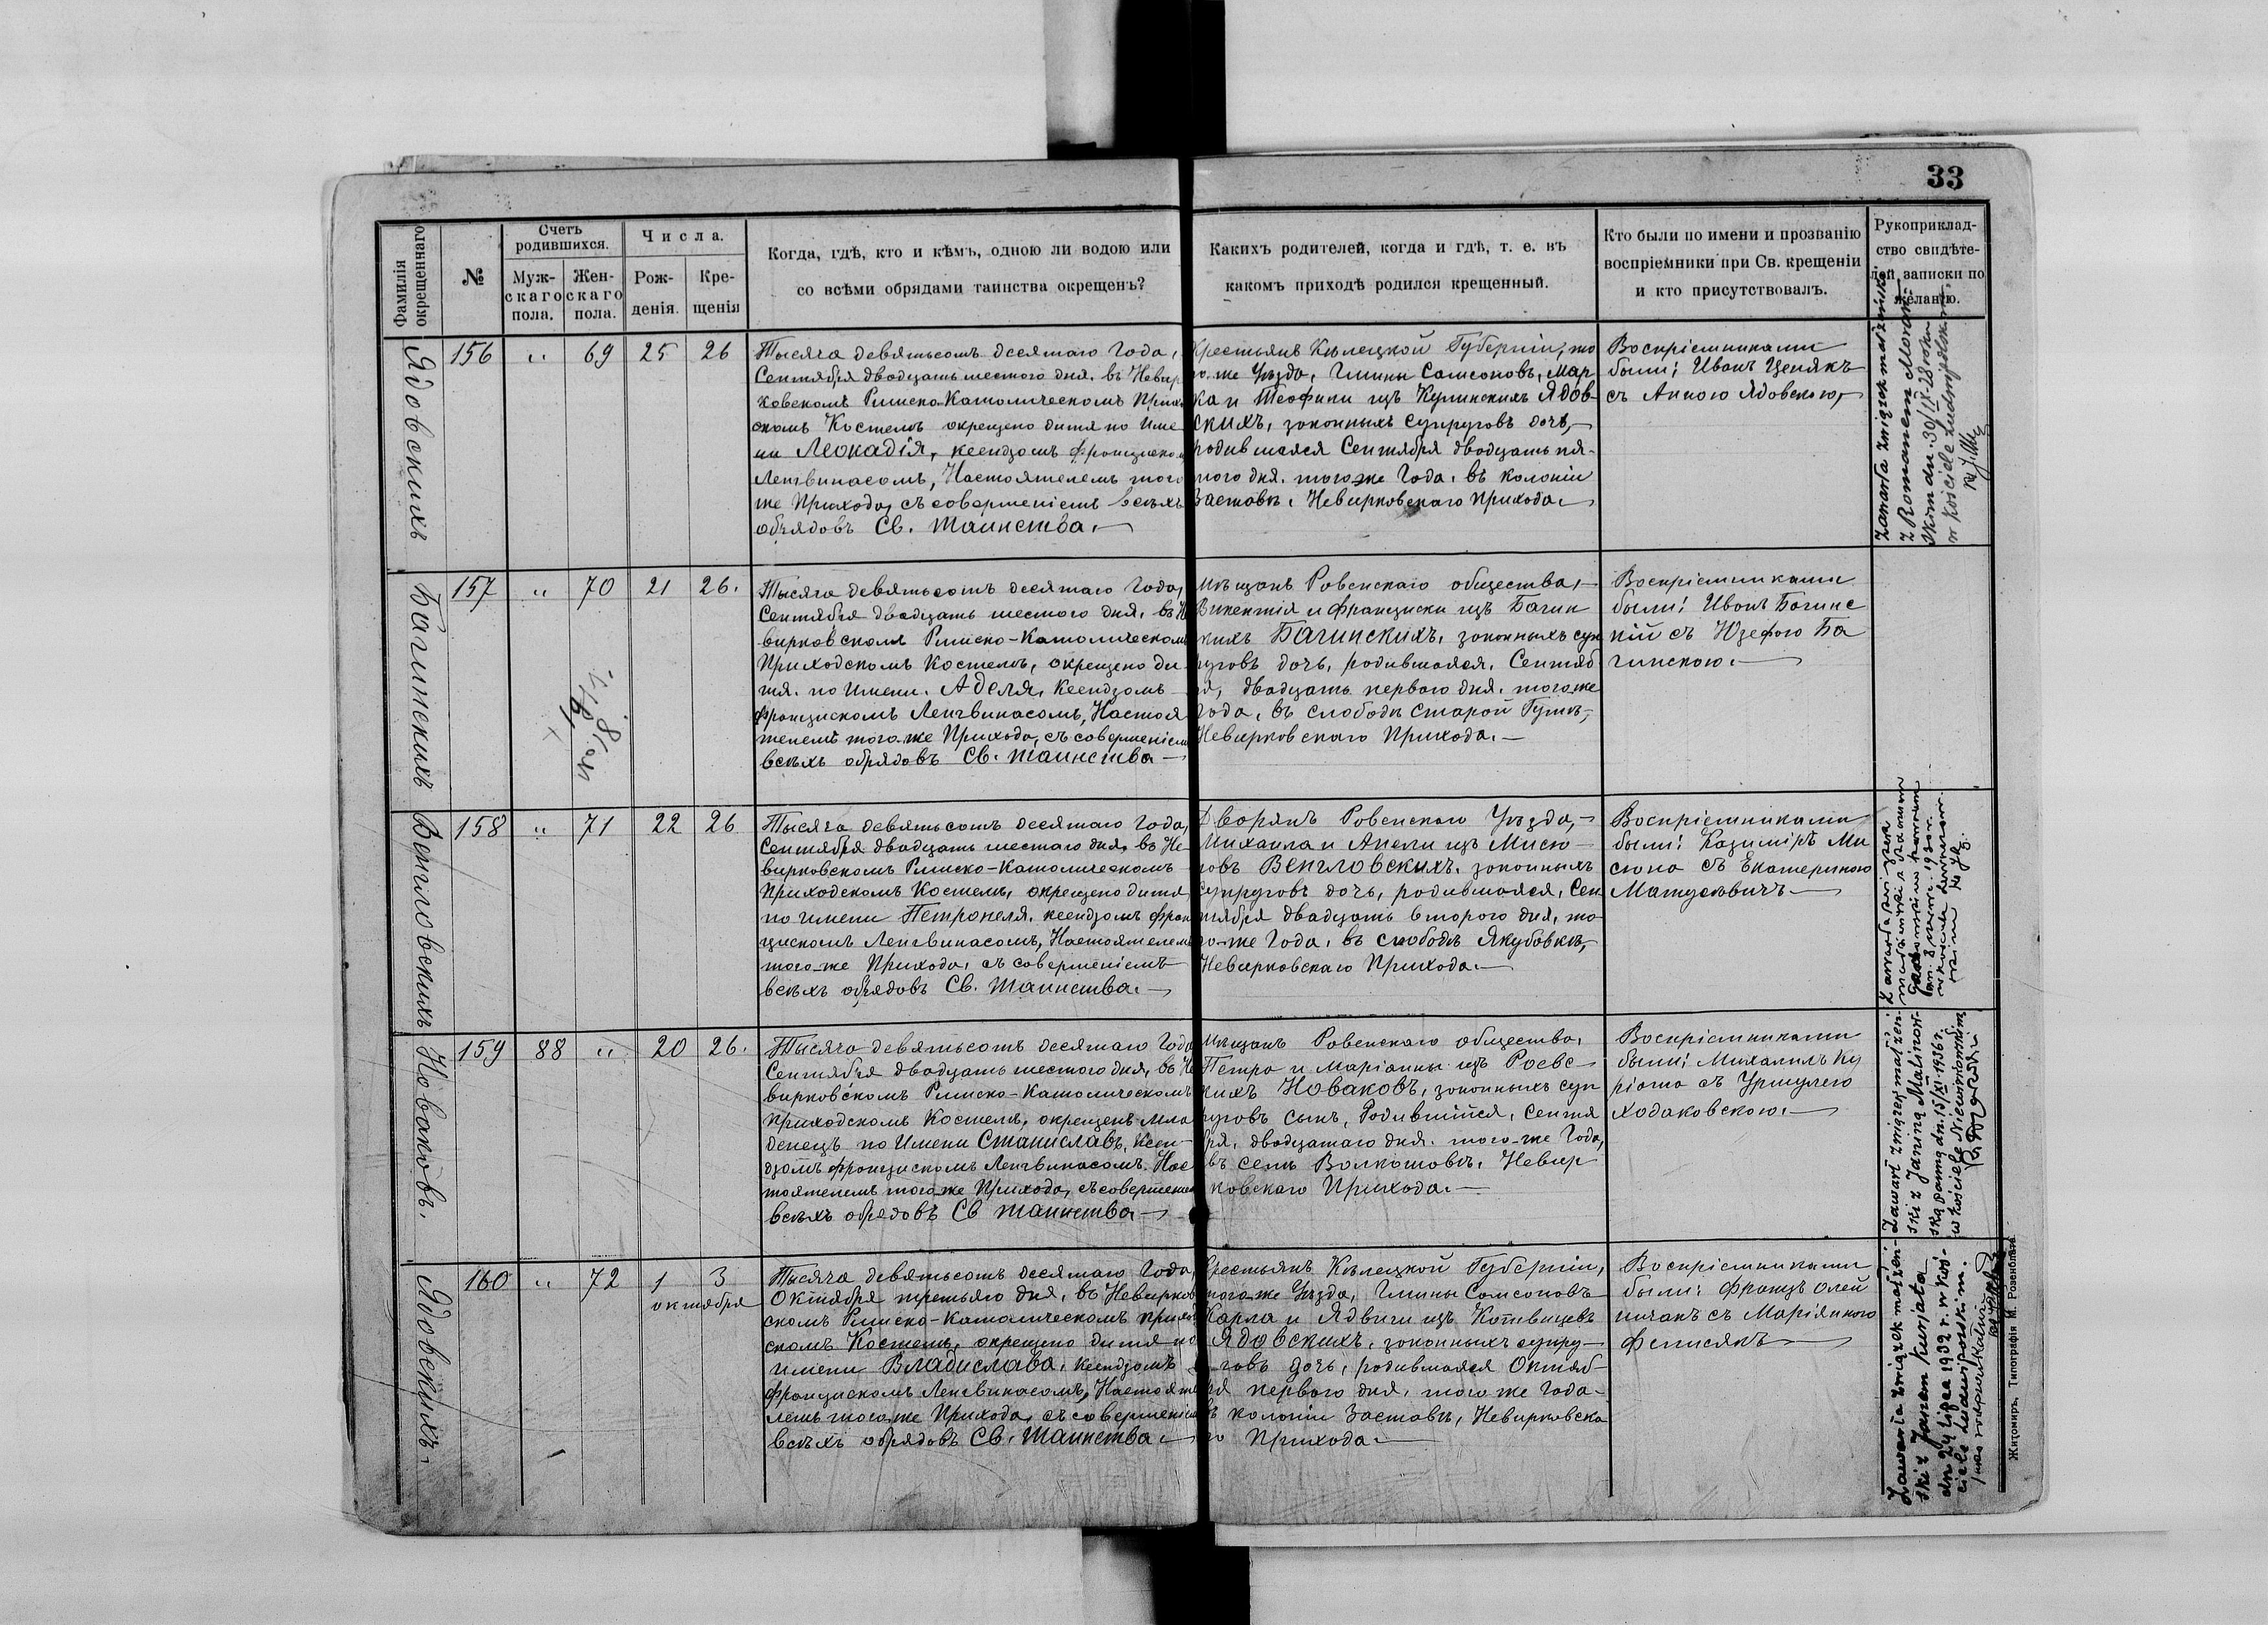 33
Фамилія
окрещеннаго
№
Счетъ
родившихся.
Муж-
скаго
пола.
Жен-
скаго
пола.
Числа.
Рож-
денія.
Кре-
щенія
Когда, гдѣ, кто и кѣмъ, одною ли водою или
со всѣми обрядами таинства окрещенъ?
Какихъ родителей, когда и гдѣ, т. е. въ
какомъ приходѣ родился крещенный.
Кто были по имени и прозванію
воспріемники при Св. крещеніи
и кто присутствовалъ.
Рукоприклад-
ство свидѣте-
лей записки по
желанію.
Ядовскихъ
156 „ 69 25 26
Тысяча девятьсотъ десятаго Года,
Сентября двадцать шестого дня, въ Невир
ковскомъ Римско-Католическомъ Прихо
скомъ Костелѣ окрещено дитя по Име
ни Леокадія, ксендзомъ Францискомъ
Ленгвинасомъ, Настоятелемъ того
же Прихода, съ совершеніемъ всѣхъ
обрядовъ Св. Таинства.
Крестьянъ Кѣлецкой Губерніи, то
го-же Уѣзда, Гмины Самсоновъ, Мар
ка и Теофили изъ Кулинскихъ Ядов-
скихъ, законныхъ супруговъ дочь,
родившаяся Сентября двадцать пя-
того дня, того-же Года, въ колоніи
Заставѣ, Невирковскаго Прихода.
Воспріемниками
были: Иванъ Ценякъ
съ Анною Ядовскою,
Zawarła związek małżeński
z Romanem Moraw-
skim dn. 30/IX-28 roku
w kościele Ludwipolskim
Багинскихъ
157 „ 70 21 26.
Тысяча девятьсотъ десятаго Года,
Сентября двадцать шестого дня, въ Не
вирковскомъ Римско-Католическомъ
Приходскомъ Костелѣ, окрещено ди-
тя, по Имени, Аделя, Ксендзомъ
Францискомъ Ленгвинасомъ, Настоя
телемъ того-же Прихода, съ совершеніемъ
всѣхъ обрядовъ Св. Таинства
Мѣщанъ Ровенскаго общества,
Викентія и Франциски изъ Багин
скихъ Багинскихъ, законныхъ суп
руговъ дочь, родившаяся, Сентяб
ря, двадцать перваго дня, того-же
Года, въ слободѣ Старой Гутѣ,
Невирковскаго Прихода.
Воспріемниками
были: Иванъ Багинс
кій съ Юзефою Ба
гинскою.
Венгловскихъ
158 „ 71 22 26
Тысяча девятьсотъ десятаго Года,
Сентября двадцать шестаго дня, въ Не-
вирковскомъ Римско-Католическомъ
Приходскомъ Костелѣ, окрещено дитя,
по имени Петронеля, ксендзомъ Фран
цискомъ Ленгвинасомъ, Настоятелемъ
того-же Прихода, съ совершеніемъ
всѣхъ обрядовъ Св. Таинства.
Дворянъ Ровенскаго Уѣзда,
Михаила и Анели изъ Мисю-
новъ Венгловскихъ, законныхъ
супруговъ дочь, родившаяся, Сен
тября двадцать второго дня, то
го-же Года, въ слободѣ Якубовкѣ,
Невирковскаго Прихода.
Воспріемниками
были: Казиміръ Ми
сюна съ Екатериною
Матусевичъ
Новаковъ.
159 88 „ 20 26.
Тысяча девятьсотъ десятаго Года
Сентября двадцать шестого дня, въ Не
вирковскомъ Римско-Католическомъ
Приходскомъ Костелѣ, окрещенъ мла
денецъ по Имени Станиславъ, Ксен-
дзомъ Францискомъ Ленгвинасомъ, Нас
тоятелемъ того-же Прихода, съ совершеніемъ
всѣхъ обрядовъ Св Таинства
Мѣщанъ Ровенскаго общества,
Петра и Маріанны изъ Роевс-
кихъ Новаковъ, законныхъ суп
руговъ сынъ, Родившійся, Сентя
бря, двадцатаго дня, того-же Года,
въ селѣ Волкошовѣ, Невир
ковскаго Прихода.
Воспріемниками
были: Михаилъ Ку
ріата съ Уршулею
Ходаковскою.
Zawarł związek małżeń-
ski z Janiną Malinow-
ską panną dn. 15/XI 1936 r.
w kościele Niewirkowskim
Ядовскихъ
160 „ 72 1 3
октября
Тысяча девятьсотъ десятаго Года,
Октября третьяго дня, въ Невирков
скомъ Римско-Католическомъ приход
скомъ Костелѣ, окрещено дитя по
имени Владислава, ксендзомъ
Францискомъ Ленгвинасомъ, Настояте
лемъ того-же Прихода, съ совершеніемъ
всѣхъ обрядовъ Св. Таинства.
Крестьянъ Кѣлецкой Губерніи,
того-же Уѣзда, Гмины Самсоновъ
Карла и Ядвиги изъ Котвицевъ
Ядовскихъ, законныхъ супру-
говъ дочь, родившаяся Октяб-
ря перваго дня, того же Года
въ колоніи Заставѣ, Невирковска
го Прихода.
Воспріемниками
были: Францъ Олей
ничакъ съ Маріянною
Фелисякъ
Zawarła związek małżeń-
ski z Janem Kurjatą
dn 24 lipca 1932 r. w koś-
ciele Ludwipolskim.
Житомиръ, Типографія М. Розенблата